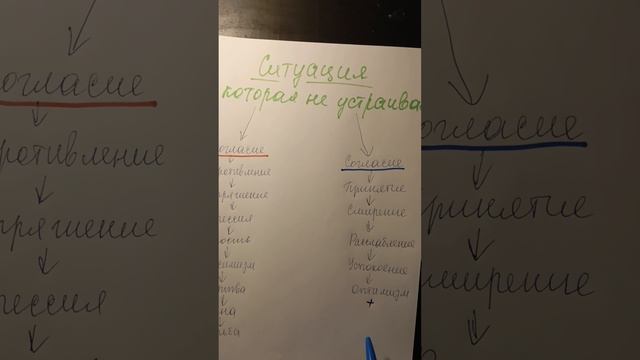 Ситуация
которая не устраива
огласие
ротивление
пряжение
рессия
симизм
на
Согласие
Принятие
Смирение
Расслабление
Успокоение
Оптимизм
+
огласие
ротивление
пряжение
рессия
огласие
ринятие
мирение